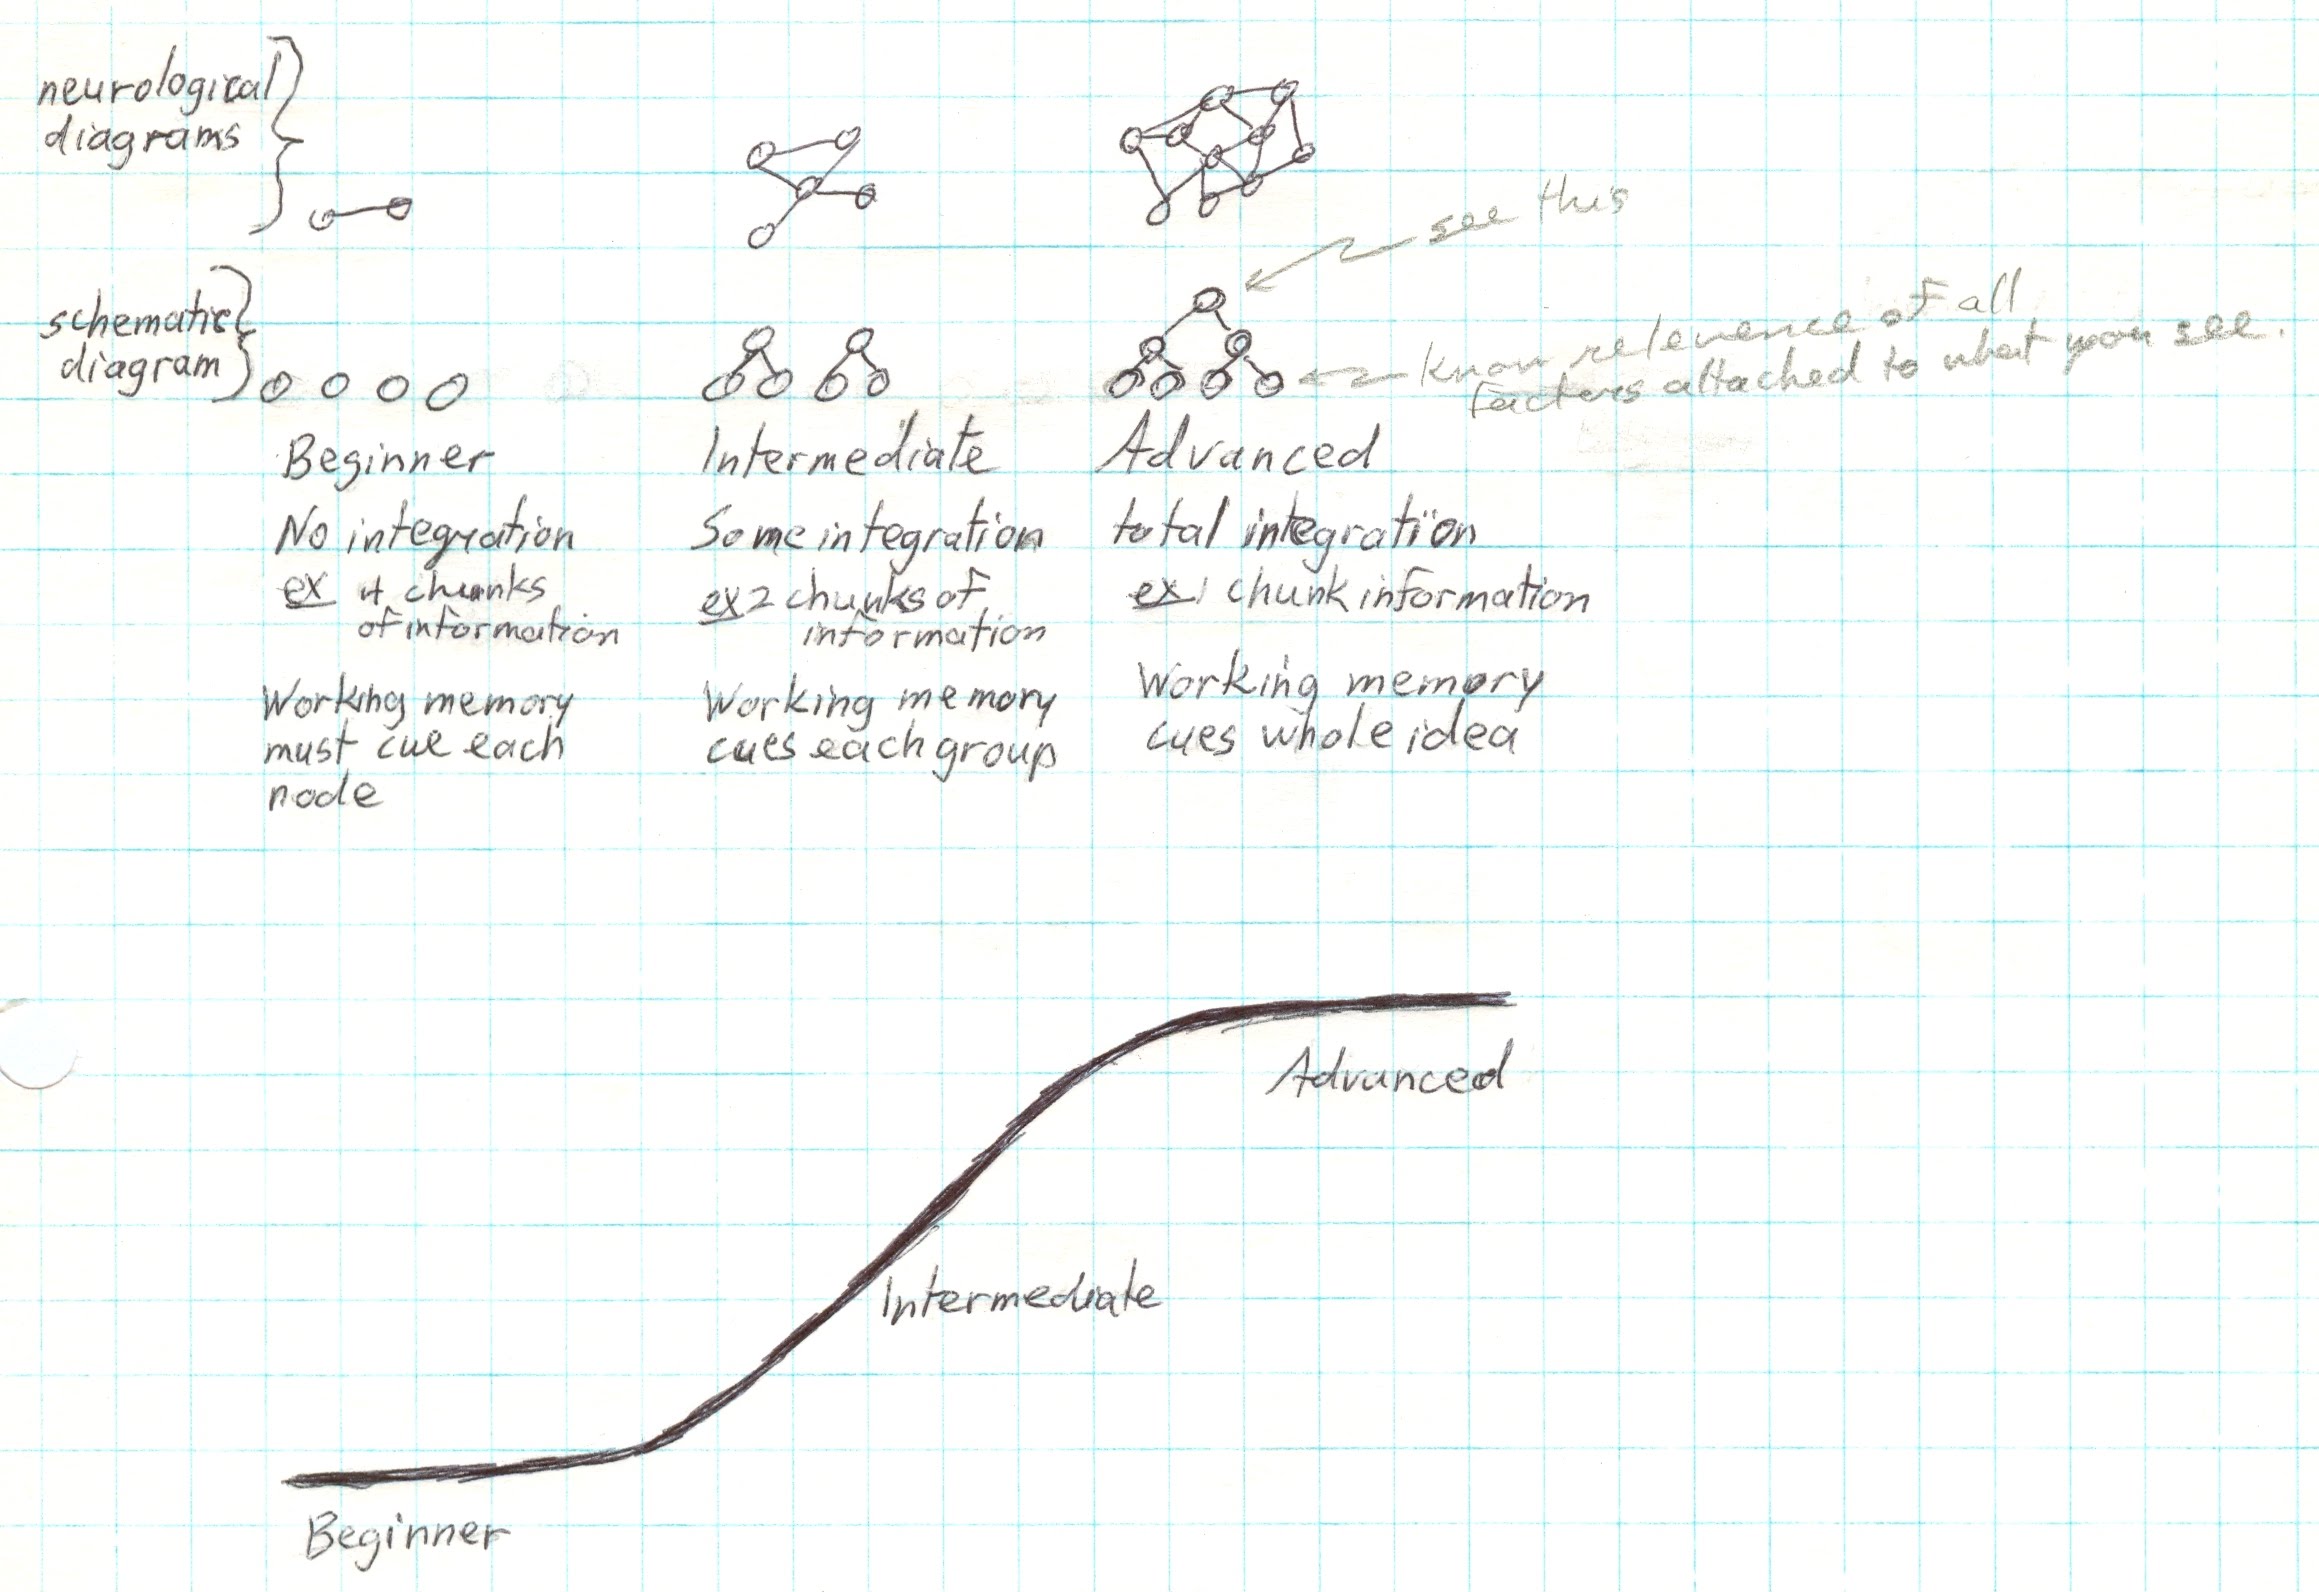 neurological
diagrams
see this
schematic
diagram
know relevence of all
factors attached to what you see.
Beginner
No integration
ex 4 chunks
of information
Working memory
must cue each
node
Intermediate
Some integration
ex 2 chunks of
information
Working memory
cues each group
Advanced
total integration
ex 1 chunk information
Working memory
cues whole idea
Advanced
Intermediate
Beginner